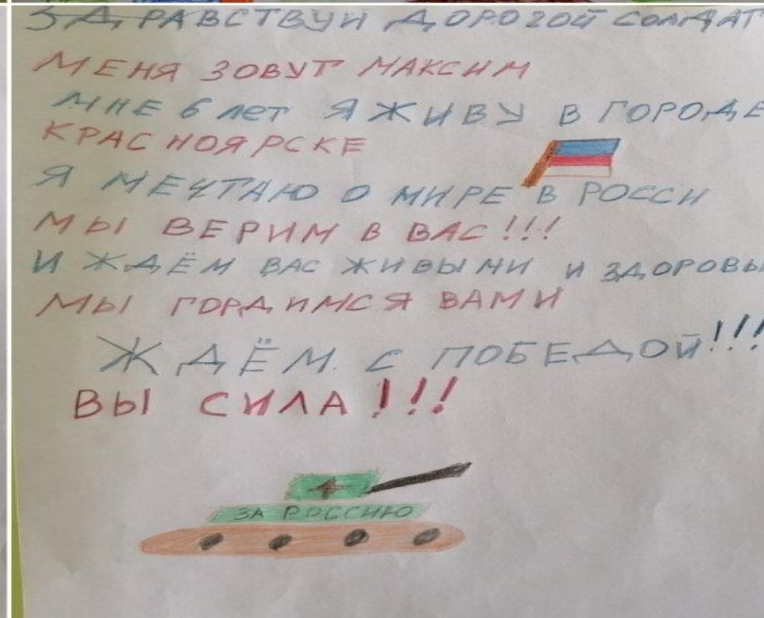 ЗДРАВСТВУЙ ДОРОГОЙ СОЛДАТ
МЕНЯ ЗОВУТ МАКСИМ
МНЕ 6 лет Я ЖИВУ В ГОРОДЕ
КРАСНОЯРСКЕ
Я МЕЧТАЮ О МИРЕ В РОССИ
МЫ ВЕРИМ В ВАС!!!
И ЖДЁМ ВАС ЖИВЫМИ И ЗДОРОВЫ
МЫ ГОРДИМСЯ ВАМИ
ЖДЁМ С ПОБЕДОЙ!!!
ВЫ СИЛА!!!
ЗА РОССИЮ